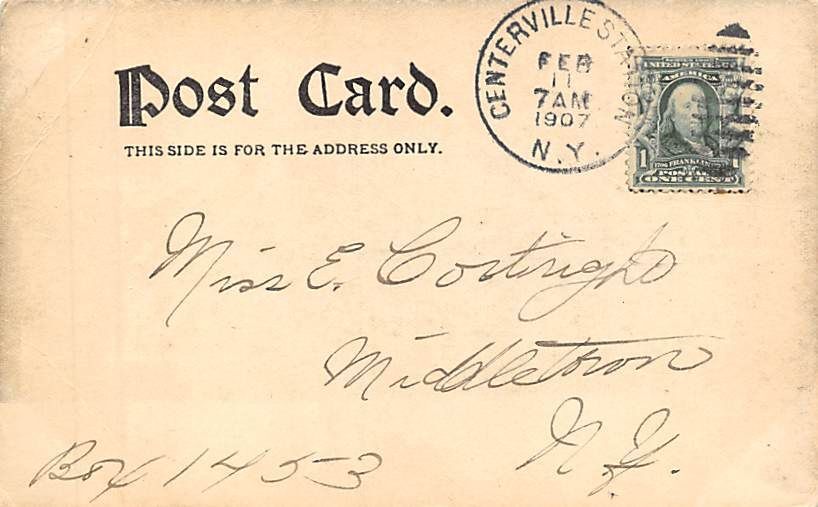 Post Card.
THIS SIDE IS FOR THE ADDRESS ONLY.
CENTERVILLE STATION
FEB
11
7 AM
1907
N.Y.
UNITED STATES
AMERICA
1 FRANKLIN 1
POSTAGE
ONE CENT
Miss E. Cortright
Middletown
N.Y.
Box 1453